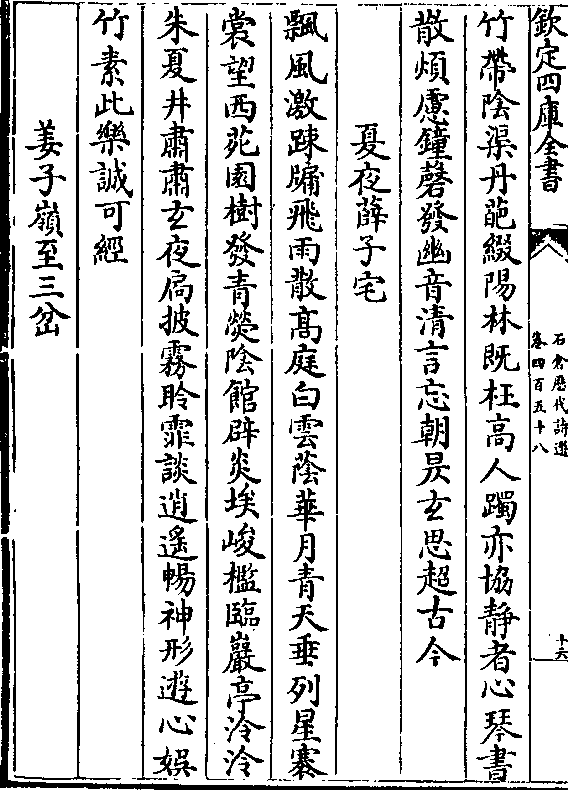 欽定四庫全書
石倉歷代詩選
卷四百五十八
十六
竹帶陰渠丹葩綴陽林既枉高人躅亦協静者心琴書
散煩慮鐘磬發幽音清言忘朝昃玄思超古今
夏夜薛子宅
飄風激踈牖飛雨散高庭白雲蔭華月青天垂列星褰
裳望西苑園樹發青熒陰館辟炎埃峻檻臨巖亭泠泠
朱夏井肅肅玄夜扃披霧聆霏談逍遥暢神形遊心娯
竹素此樂誠可經
姜子嶺至三岔